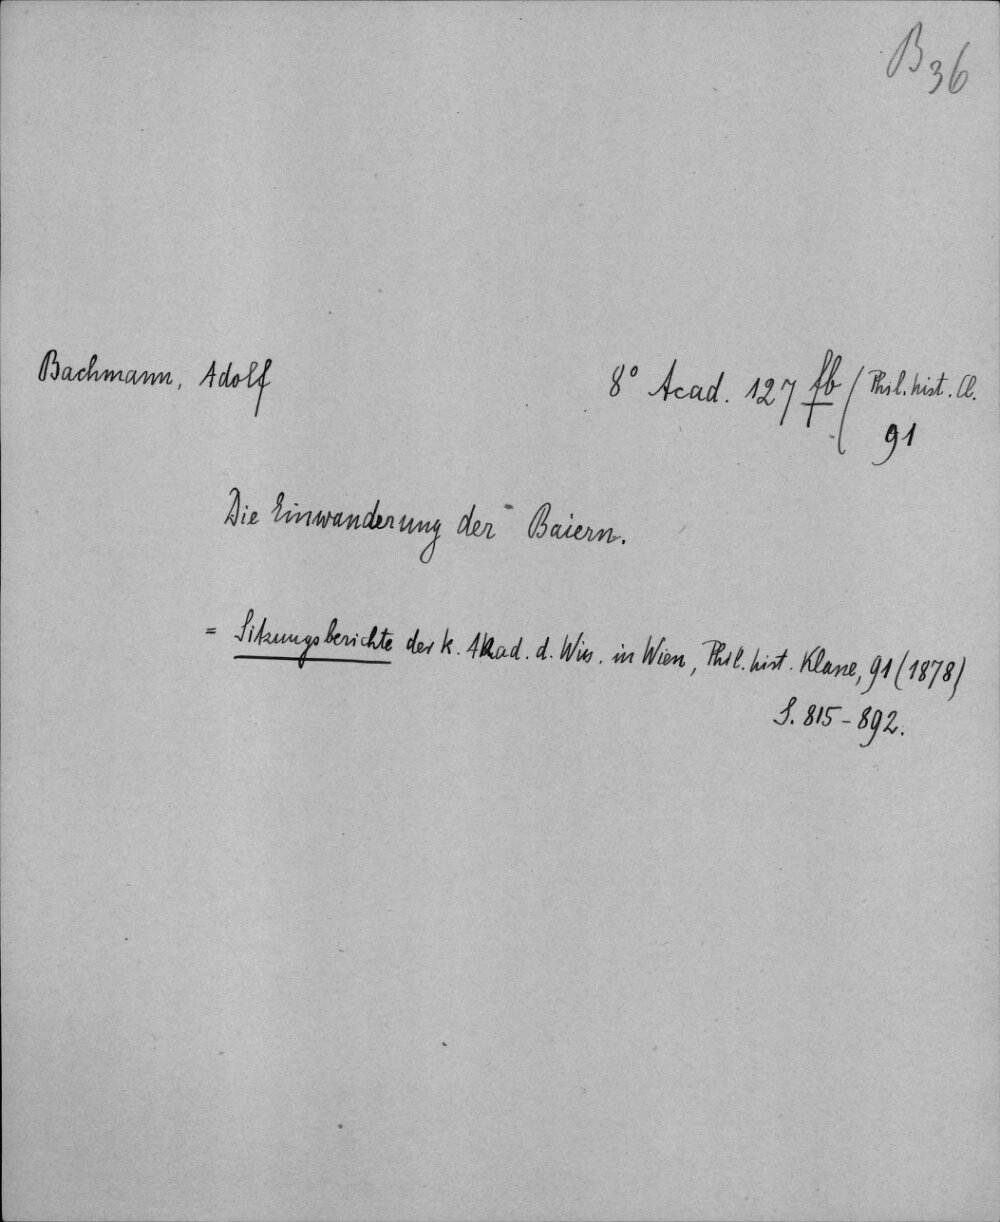 B 36
Bachmann, Adolf
8° Acad. 127 fb (Phil. hist. Cl.
91
Die Einwanderung der Baiern.
= Sitzungsberichte der k. Akad. d. Wiss. in Wien, Phil. hist. Klasse, 91 (1878)
S. 815-892.